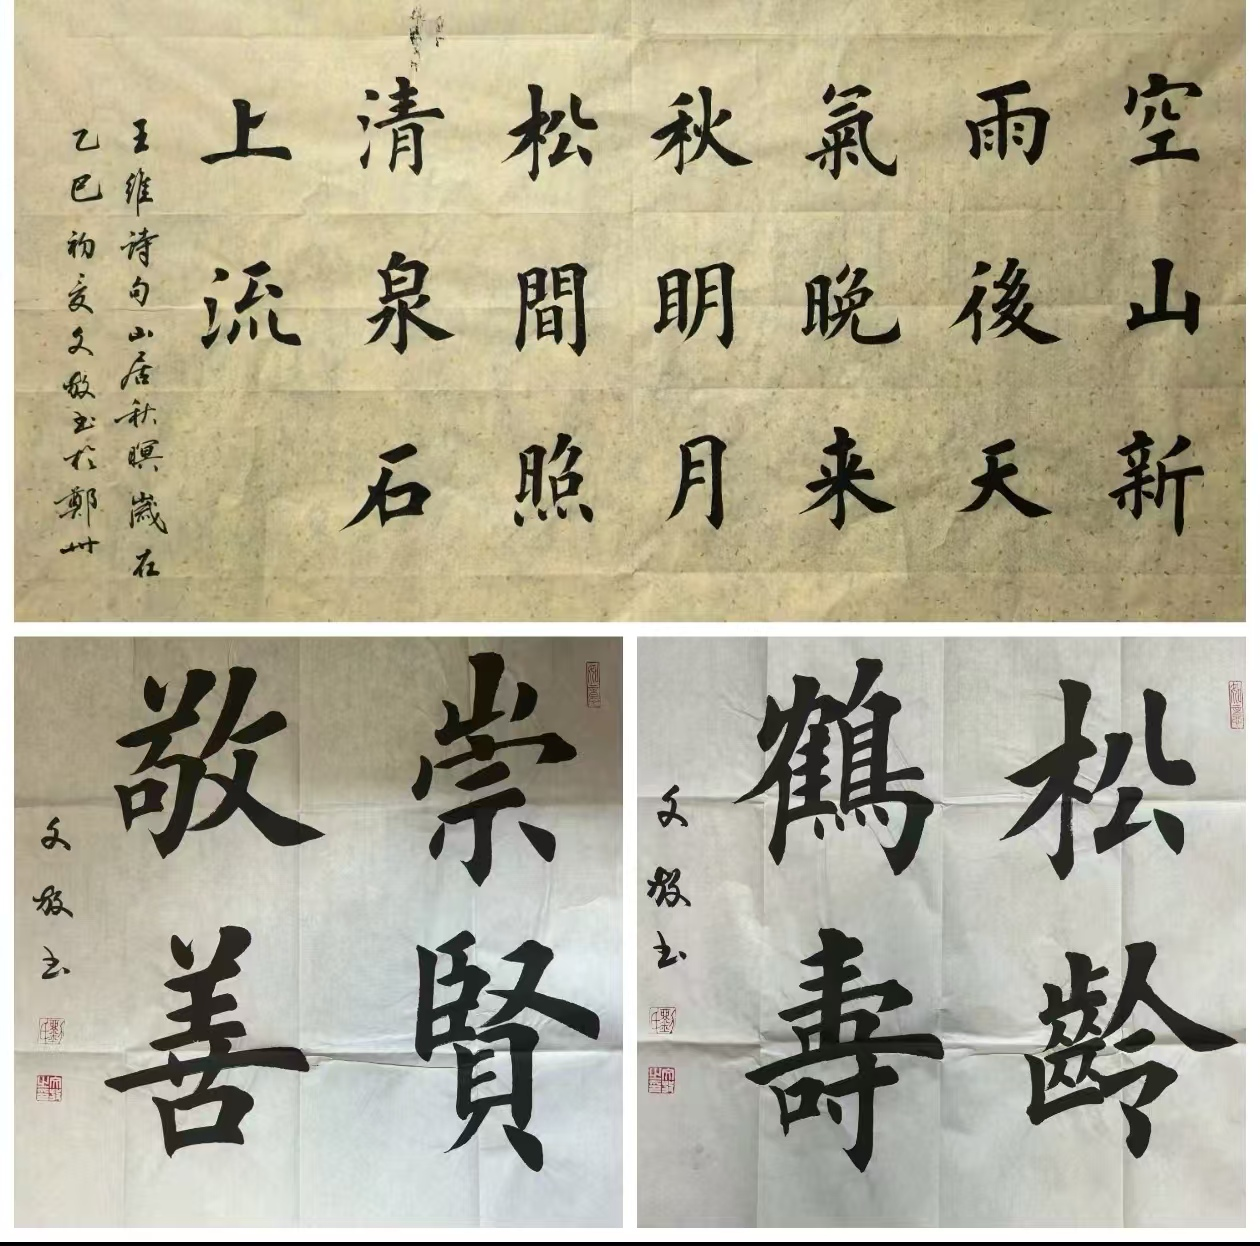 空山新
雨後天
氣晚来
秋明月
松間照
清泉石
上流
王維诗句山居秋暝歲在
乙巳初夏文敬书於鄭州
崇賢
敬善
文敬书
松齡
鶴壽
文敬书